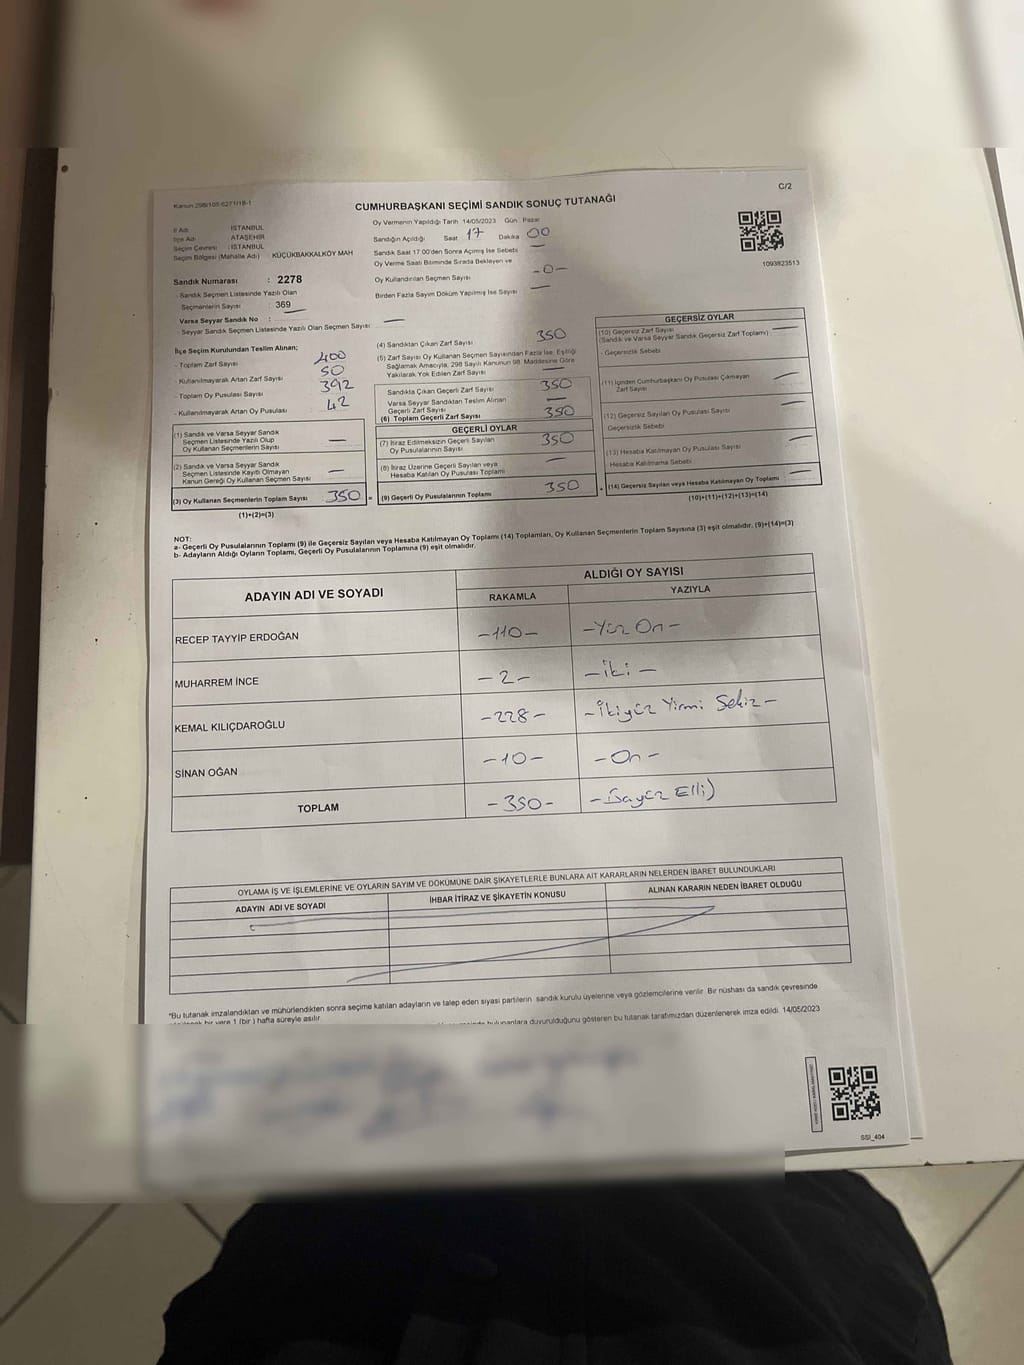 Kanun 298/105-6271/18-1
C/2
CUMHURBAŞKANI SEÇİMİ SANDIK SONUÇ TUTANAĞI
İl Adı : İSTANBUL
İlçe Adı : ATAŞEHİR
Seçim Çevresi : İSTANBUL
Seçim Bölgesi (Mahalle Adı) : KÜÇÜKBAKKALKÖY MAH
Oy Vermenin Yapıldığı Tarih 14/05/2023 Gün Pazar
Sandığın Açıldığı Saat 17 Dakika 00
Sandık Saat 17:00'den Sonra Açılmış İse Sebebi —
Oy Verme Saati Bitiminde Sırada Bekleyen ve
Oy Kullandırılan Seçmen Sayısı -0-
Birden Fazla Sayım Döküm Yapılmış İse Sayısı —
1093823513
Sandık Numarası : 2278
- Sandık Seçmen Listesinde Yazılı Olan
Seçmenlerin Sayısı : 369
Varsa Seyyar Sandık No : —
- Seyyar Sandık Seçmen Listesinde Yazılı Olan Seçmen Sayısı: —
İlçe Seçim Kurulundan Teslim Alınan;
- Toplam Zarf Sayısı 400
- Kullanılmayarak Artan Zarf Sayısı 50
- Toplam Oy Pusulası Sayısı 392
- Kullanılmayarak Artan Oy Pusulası 42
(1) Sandık ve Varsa Seyyar Sandık
Seçmen Listesinde Yazılı Olup
Oy Kullanan Seçmenlerin Sayısı —
(2) Sandık ve Varsa Seyyar Sandık
Seçmen Listesinde Kayıtlı Olmayan
Kanun Gereği Oy Kullanan Seçmen Sayısı —
(3) Oy Kullanan Seçmenlerin Toplam Sayısı 350 =
(1)+(2)=(3)
(4) Sandıktan Çıkan Zarf Sayısı 350
(5) Zarf Sayısı Oy Kullanan Seçmen Sayısından Fazla İse, Eşitliği
Sağlamak Amacıyla, 298 Sayılı Kanunun 98. Maddesine Göre
Yakılarak Yok Edilen Zarf Sayısı —
Sandıkta Çıkan Geçerli Zarf Sayısı 350
Varsa Seyyar Sandıktan Teslim Alınan
Geçerli Zarf Sayısı —
(6) Toplam Geçerli Zarf Sayısı 350
GEÇERLİ OYLAR
(7) İtiraz Edilmeksizin Geçerli Sayılan
Oy Pusulalarının Sayısı 350
(8) İtiraz Üzerine Geçerli Sayılan veya
Hesaba Katılan Oy Pusulası Toplamı —
(9) Geçerli Oy Pusulalarının Toplamı 350 +
GEÇERSİZ OYLAR
(10) Geçersiz Zarf Sayısı —
(Sandık ve Varsa Seyyar Sandık Geçersiz Zarf Toplamı)
- Geçersizlik Sebebi
(11) İçinden Cumhurbaşkanı Oy Pusulası Çıkmayan
Zarf Sayısı —
(12) Geçersiz Sayılan Oy Pusulası Sayısı —
Geçersizlik Sebebi
(13) Hesaba Katılmayan Oy Pusulası Sayısı —
Hesaba Katılmama Sebebi
(14) Geçersiz Sayılan veya Hesaba Katılmayan Oy Toplamı —
(10)+(11)+(12)+(13)=(14)
NOT:
a- Geçerli Oy Pusulalarının Toplamı (9) ile Geçersiz Sayılan veya Hesaba Katılmayan Oy Toplamı (14) Toplamları, Oy Kullanan Seçmenlerin Toplam Sayısına (3) eşit olmalıdır. (9)+(14)=(3)
b- Adayların Aldığı Oyların Toplamı, Geçerli Oy Pusulalarının Toplamına (9) eşit olmalıdır.
ADAYIN ADI VE SOYADI
ALDIĞI OY SAYISI
RAKAMLA YAZIYLA
RECEP TAYYİP ERDOĞAN -110- -Yüz On-
MUHARREM İNCE -2- -İki-
KEMAL KILIÇDAROĞLU -228- -İkiyüz Yirmi Sekiz-
SİNAN OĞAN -10- -On-
TOPLAM -350- -Üçyüz Elli)
OYLAMA İŞ VE İŞLEMLERİNE VE OYLARIN SAYIM VE DÖKÜMÜNE DAİR ŞİKAYETLERLE BUNLARA AİT KARARLARIN NELERDEN İBARET BULUNDUKLARI
ADAYIN ADI VE SOYADI İHBAR İTİRAZ VE ŞİKAYETİN KONUSU ALINAN KARARIN NEDEN İBARET OLDUĞU
*Bu tutanak imzalandıktan ve mühürlendikten sonra seçime katılan adayların ve talep eden siyasi partilerin sandık kurulu üyelerine veya gözlemcilerine verilir. Bir nüshası da sandık çevresinde
bir yere 1 (bir) hafta süreyle asılır.
bulunanlara duyurulduğunu gösteren bu tutanak tarafımızdan düzenlenerek imza edildi. 14/05/2023
SSI_404